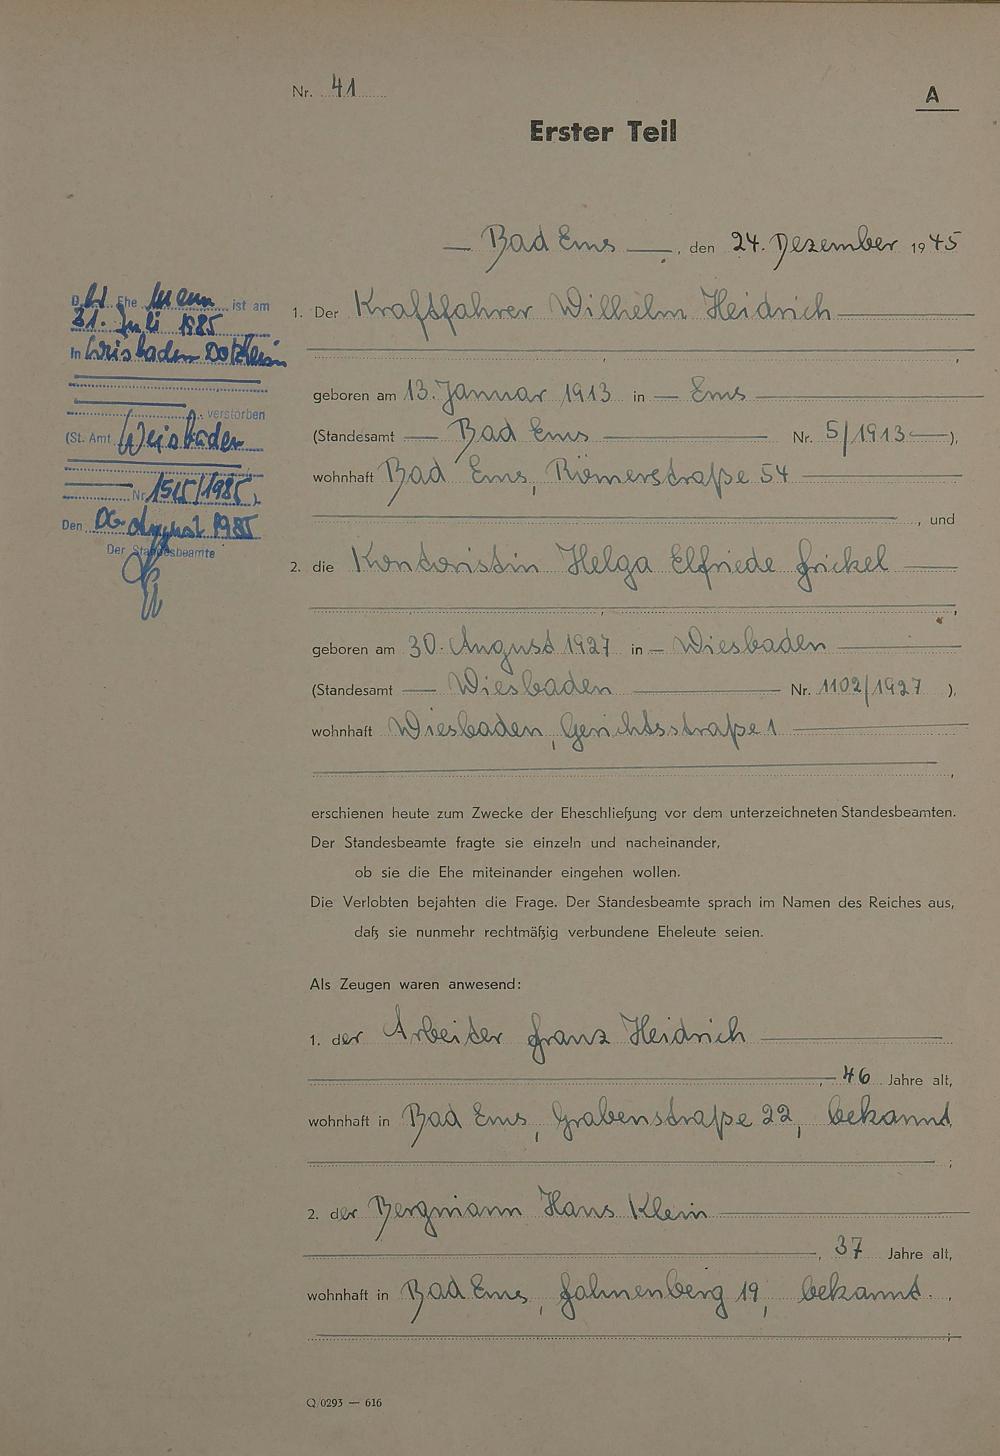 Nr. 41
A
Erster Teil
Bad Ems, den 24. Dezember 1945
1. Der Kraftfahrer Wilhelm Heidrich
geboren am 13. Januar 1913 in Ems
(Standesamt Bad Ems Nr. 5/1913),
wohnhaft Bad Ems, Römerstraße 54
, und
2. die Kontoristin Helga Elfriede Frickel
,
geboren am 30. August 1927 in Wiesbaden
(Standesamt Wiesbaden Nr. 1102/1927),
wohnhaft Wiesbaden, Gerichtsstraße 1
,
erschienen heute zum Zwecke der Eheschließung vor dem unterzeichneten Standesbeamten.
Der Standesbeamte fragte sie einzeln und nacheinander,
ob sie die Ehe miteinander eingehen wollen.
Die Verlobten bejahten die Frage. Der Standesbeamte sprach im Namen des Reiches aus,
daß sie nunmehr rechtmäßig verbundene Eheleute seien.
Als Zeugen waren anwesend:
1. der Arbeiter Franz Heidrich
, 46 Jahre alt,
wohnhaft in Bad Ems, Grabenstraße 22, bekannt,
;
2. der Bergmann Hans Klein
, 37 Jahre alt,
wohnhaft in Bad Ems, Fahnenberg 19, bekannt.
Q/0293 — 616
Ehemann ist am
31. Juli 1985
In Wiesbaden Dotzheim
verstorben
(St. Amt Wiesbaden
Nr. 1515/1985).
Den 06. August 1985
Der Standesbeamte